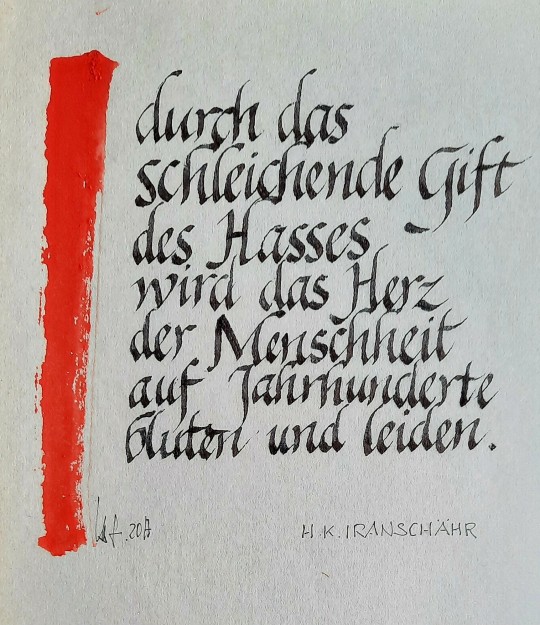 durch das
schleichende Gift
des Hasses
wird das Herz
der Menschheit
auf Jahrhunderte
bluten und leiden.
H. K. IRANSCHÄHR